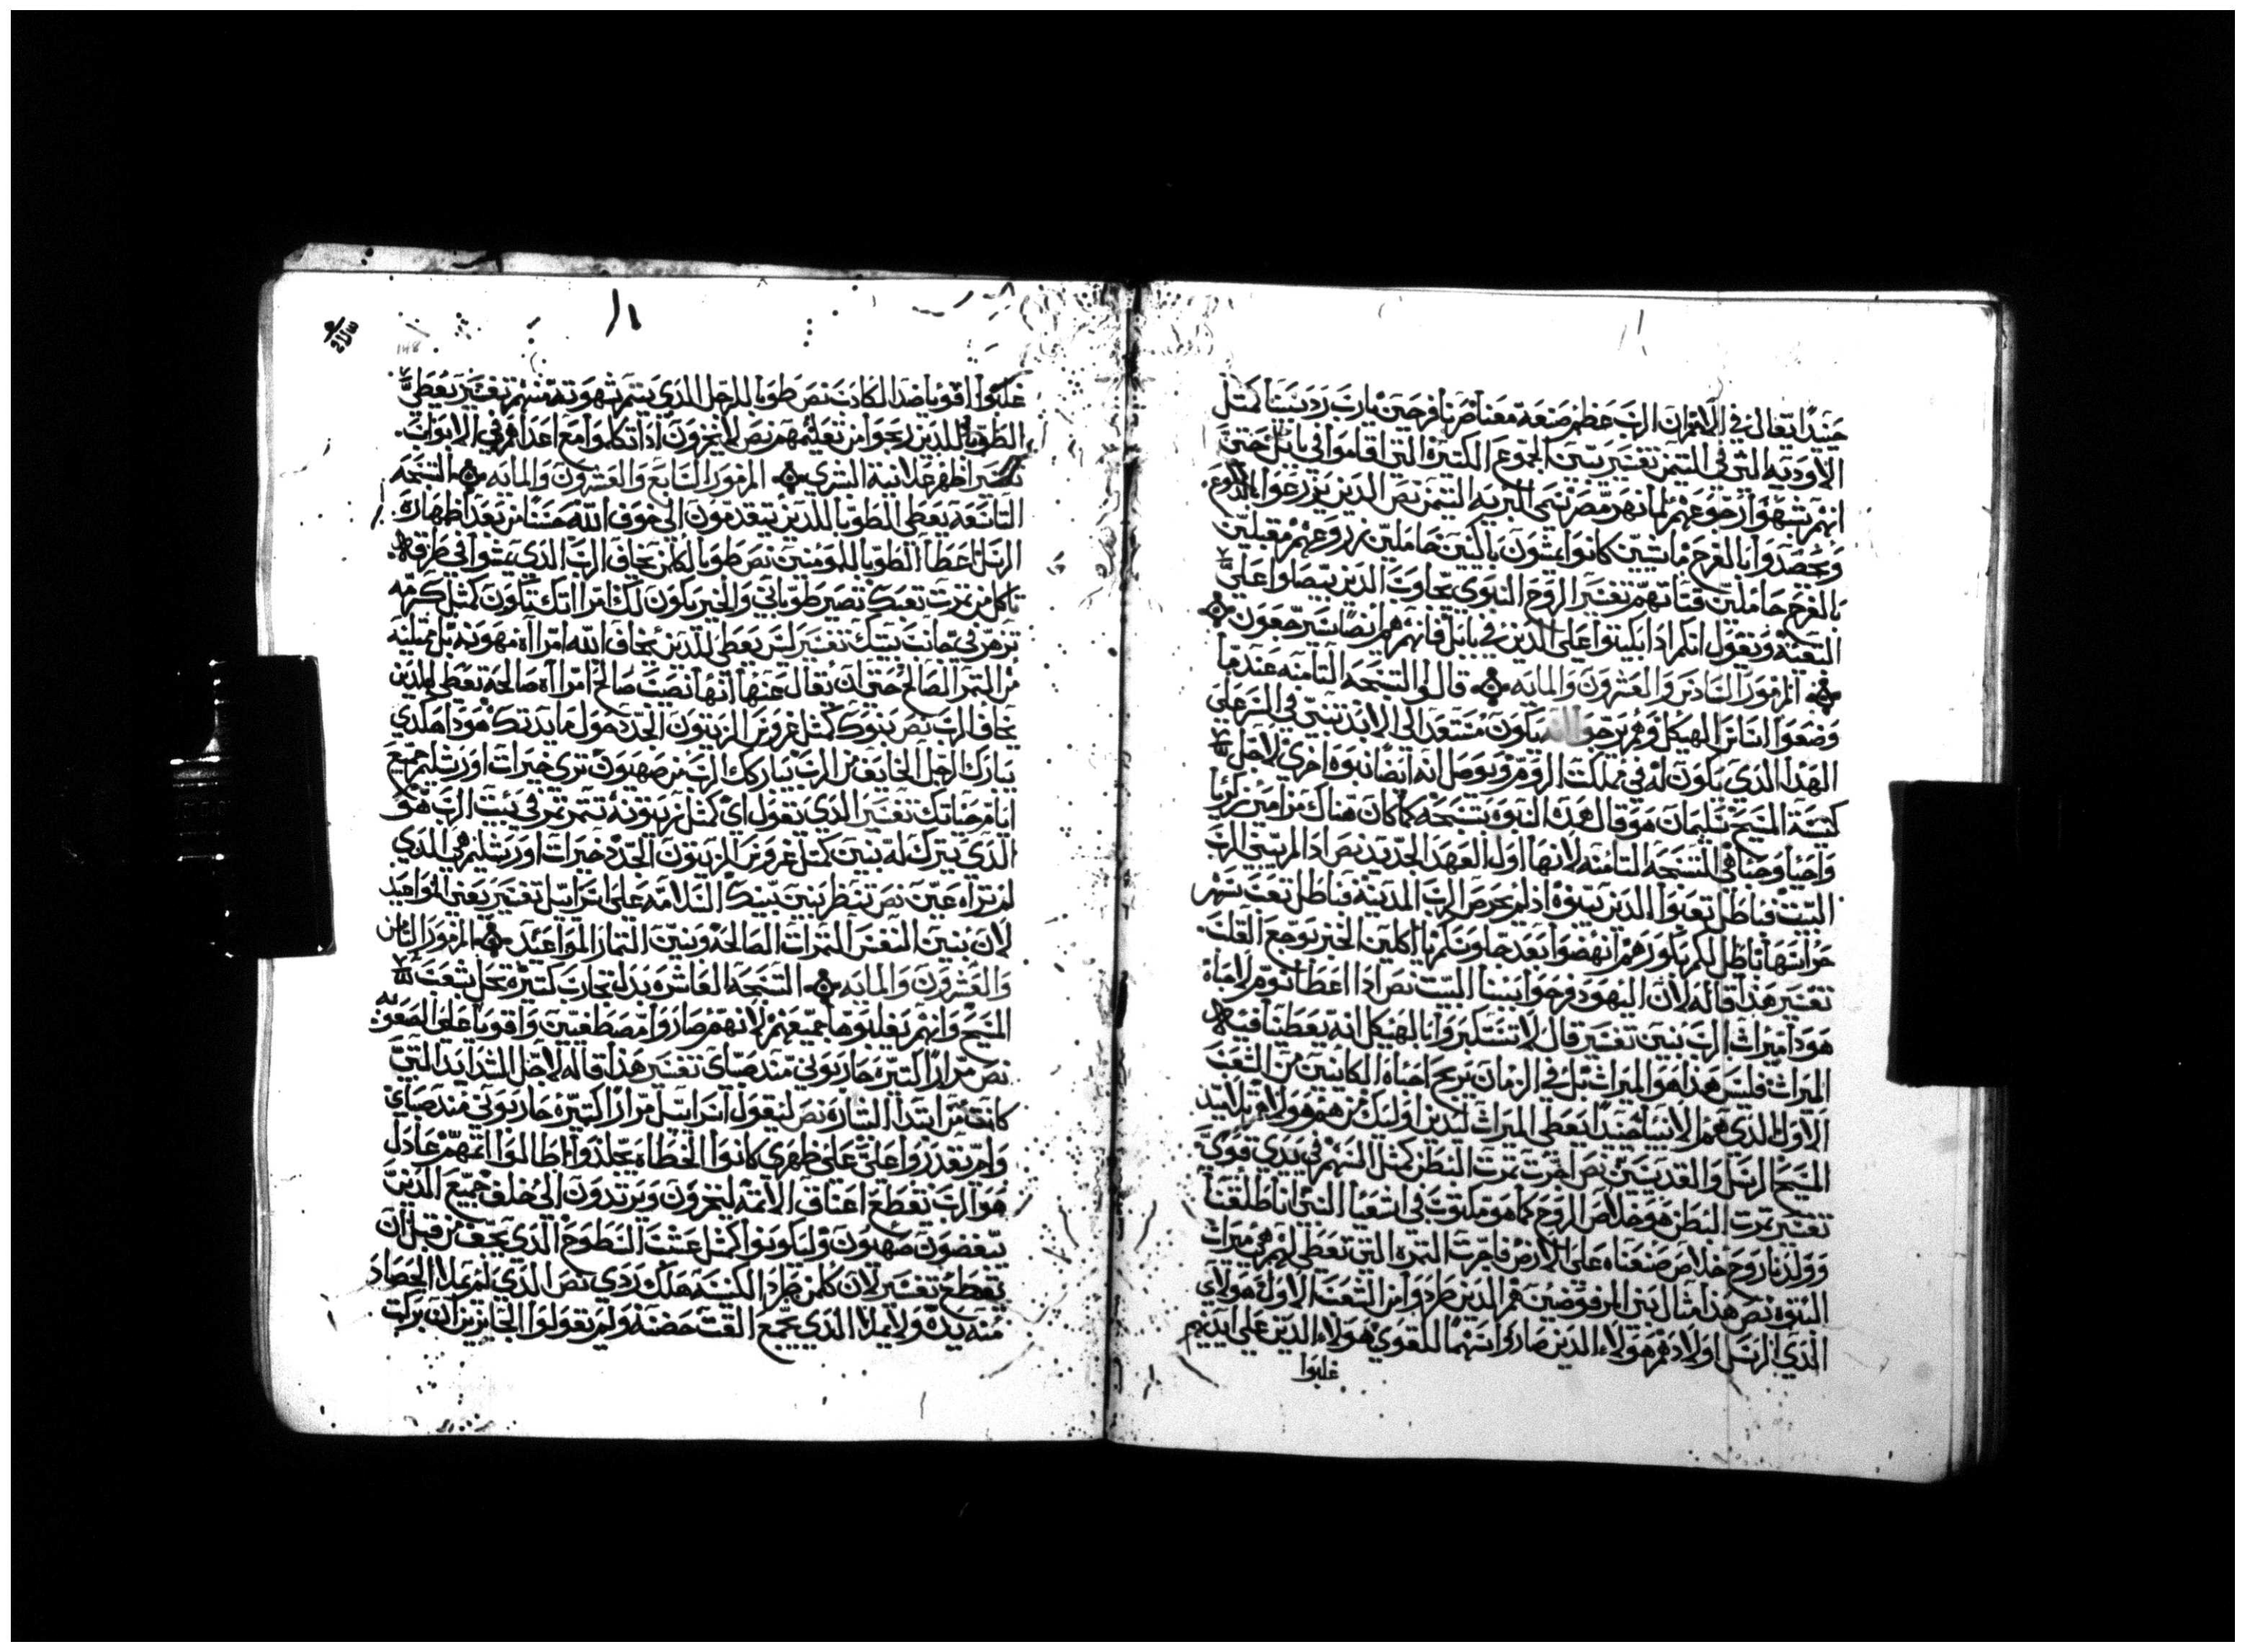 حينيذا تعالي في الامم ان الرب عظم صنعه معنا صرنا فرحين يارب رد سبينا كمثل
الاوديه التي في التيمن تفسير يبين الجموع الكتيره التي اقاموا في بابل حتي
انهم يشهوا رجوعهم لما نهر مصر نحو البريه التيمن نص الذين يزرعوا بالدموع
ويحصدوا بالفرح ماشيين كانوا يمشون باكيين حاملين زروعهم مقبلين
بالفرح حاملين قتاتهم تفسير الروح النبوي يجاوب الذين يتصلوا علي
التعبئه ويقول انكم اذا بكيتوا علي الذين في بابل فانهم هم ايضا سيرجعون
المزمور السادس والعشرون والمايه قالوا التسبحه التامنه عندما
وضعوا اساس الهيكل وهم يرجوا انه يكون مستعد الي الابد تبني في السر علي
الهدا الذي يكون له في مملكت الروم ويوصل انه ايضا نبوه اخري لاجل
كنيسة المسيح سليمان هو قال هذه النبوه بتسبحه كما كان هناك مزامير زكريا
واحيا وحنا في التسبحه التامنه لانها اول العهد الجديد نص اذا لم يبني الرب
البيت فباطل تعبوا الذين يبنوه اذ لم يحرص الرب المدينه فباطل تعب سهر
حراسها باطل لكم بكور هم انهضوا بعد جلوسكم يا اكلين الخبز بوجع القلب
تفسير هذا قاله لان اليهود فرحوا ببنا البيت نص اذا اعطا نوم لاحباه
هوذا ميراث الرب بنين تفسير قال لا تستكبروا بالهيكل انه يعطينا فيه
الميرات فليس هذا هو الميرات بل في الزمان يريح احباه الكاينين من الشعب
الاول الذي هم الانبيا حينيذا يعطي الميرات للذين اوليك من هم هولاي تلاميد
المسيح الرسل والقديسين نص اجرت تمرت البطن كمثل السهم في يدي قوي
تفسير تمرت البطن هو خلاص الروح كما هو مكتوب في اشعيا النبي اننا طلقنا
وولدنا روح خلاص صنعناه علي الارض فاجرت التمره التي تعطي لهم هي ميرات
البنوه نص هذا مثال بني المرفوضين هم الذين طردوا من الشعب الاول هولاي
الذي الرسل اولادهم هولاء الذين صاروا سهما للقوي هولاء الذين علي ايديهم
غلبوا
غلبوا اقويا ضد الكادب نص طوبا للرجل الذي يتم شهوته منهم تفسير يعطي
الطوبا للذين ربحوا من تعليمهم نص لا يخزون اذا تكلموا مع اعداهم في الابواب
تفسير اظهر علانية البشري المزمور السابع والعشرون والمايه التسبحه
التاسعه يعطي الطوبا للذين يتقدمون الي خوف الله حسنا من بعد اظهاره
الرسل اعطا الطوبا للمومنين نص طوبا لكل من يخاف الرب الذي يمشوا في طرقه
تاكل من تمرت تعبك تصير طوباني والخير يكون لك امراتك تكون كمثل كرمه
تزهر في جانب بيتك تفسير ليس يعطي للذين يخاف الله امراه مهونه بل ممتليه
من التمر الصالح حتي ان يقال عنها انها نصيب صالح امراه صالحه تعطي للذين
يخاف الرب نص بنوك كمثل غروس الزيتون الجدد حول مايدتك هوذا هكذي
يبارك الرجل الخايف من الرب يباركك الرب من صهيون تري خيرات اورشليم جميع
ايام حياتك تفسير الذي يقول اي كمثل زيتونه تتمر تمر في بيت الرب هو
الذي يترك له بنين كمثل غروس الزيتون الجدد خيرات اورشليم هي الذي
لم تراه عين نص تنظر بنين بنيك السلامه علي اسراييل تفسير يعني المواعيد
لان بنين النفس التمرات الصالحه وبنين التمار المواعيد المزمور التامن
والعشرون والمايه التسبحه العاشره يدل تجارب كتيره تحل بشعب
المسيح وانهم يغلبوها جميعهم لانهم صاروا مصطفيين واقويا علي الصعوبه
نص مرارا كتيره حاربوني منذ صباي تفسير هذا قاله لاجل الشدايد التي
كانت من ابتدا البشاره نص ليقول اسراييل مرارا كتيره حاربوني منذ صباي
ولم يقدروا علي علي ظهري كانوا الخطاه يجلدوا اطالوا اتمهم عادل
هو الرب يقطع اعناق الاتمه ليخزون ويرتدون الي خلف جميع الذين
يبغضون صهيون وليكونوا كمثل عشب السطوح الذي يجف من قبل ان
يقطع تفسير لان كلمن طرد الكنيسه هلك ردي نص الذي لم يملا الحصاد
منه يده ولا يملا الذي يجمع القت حضنه ولم يقولوا الجايزين ان بركت